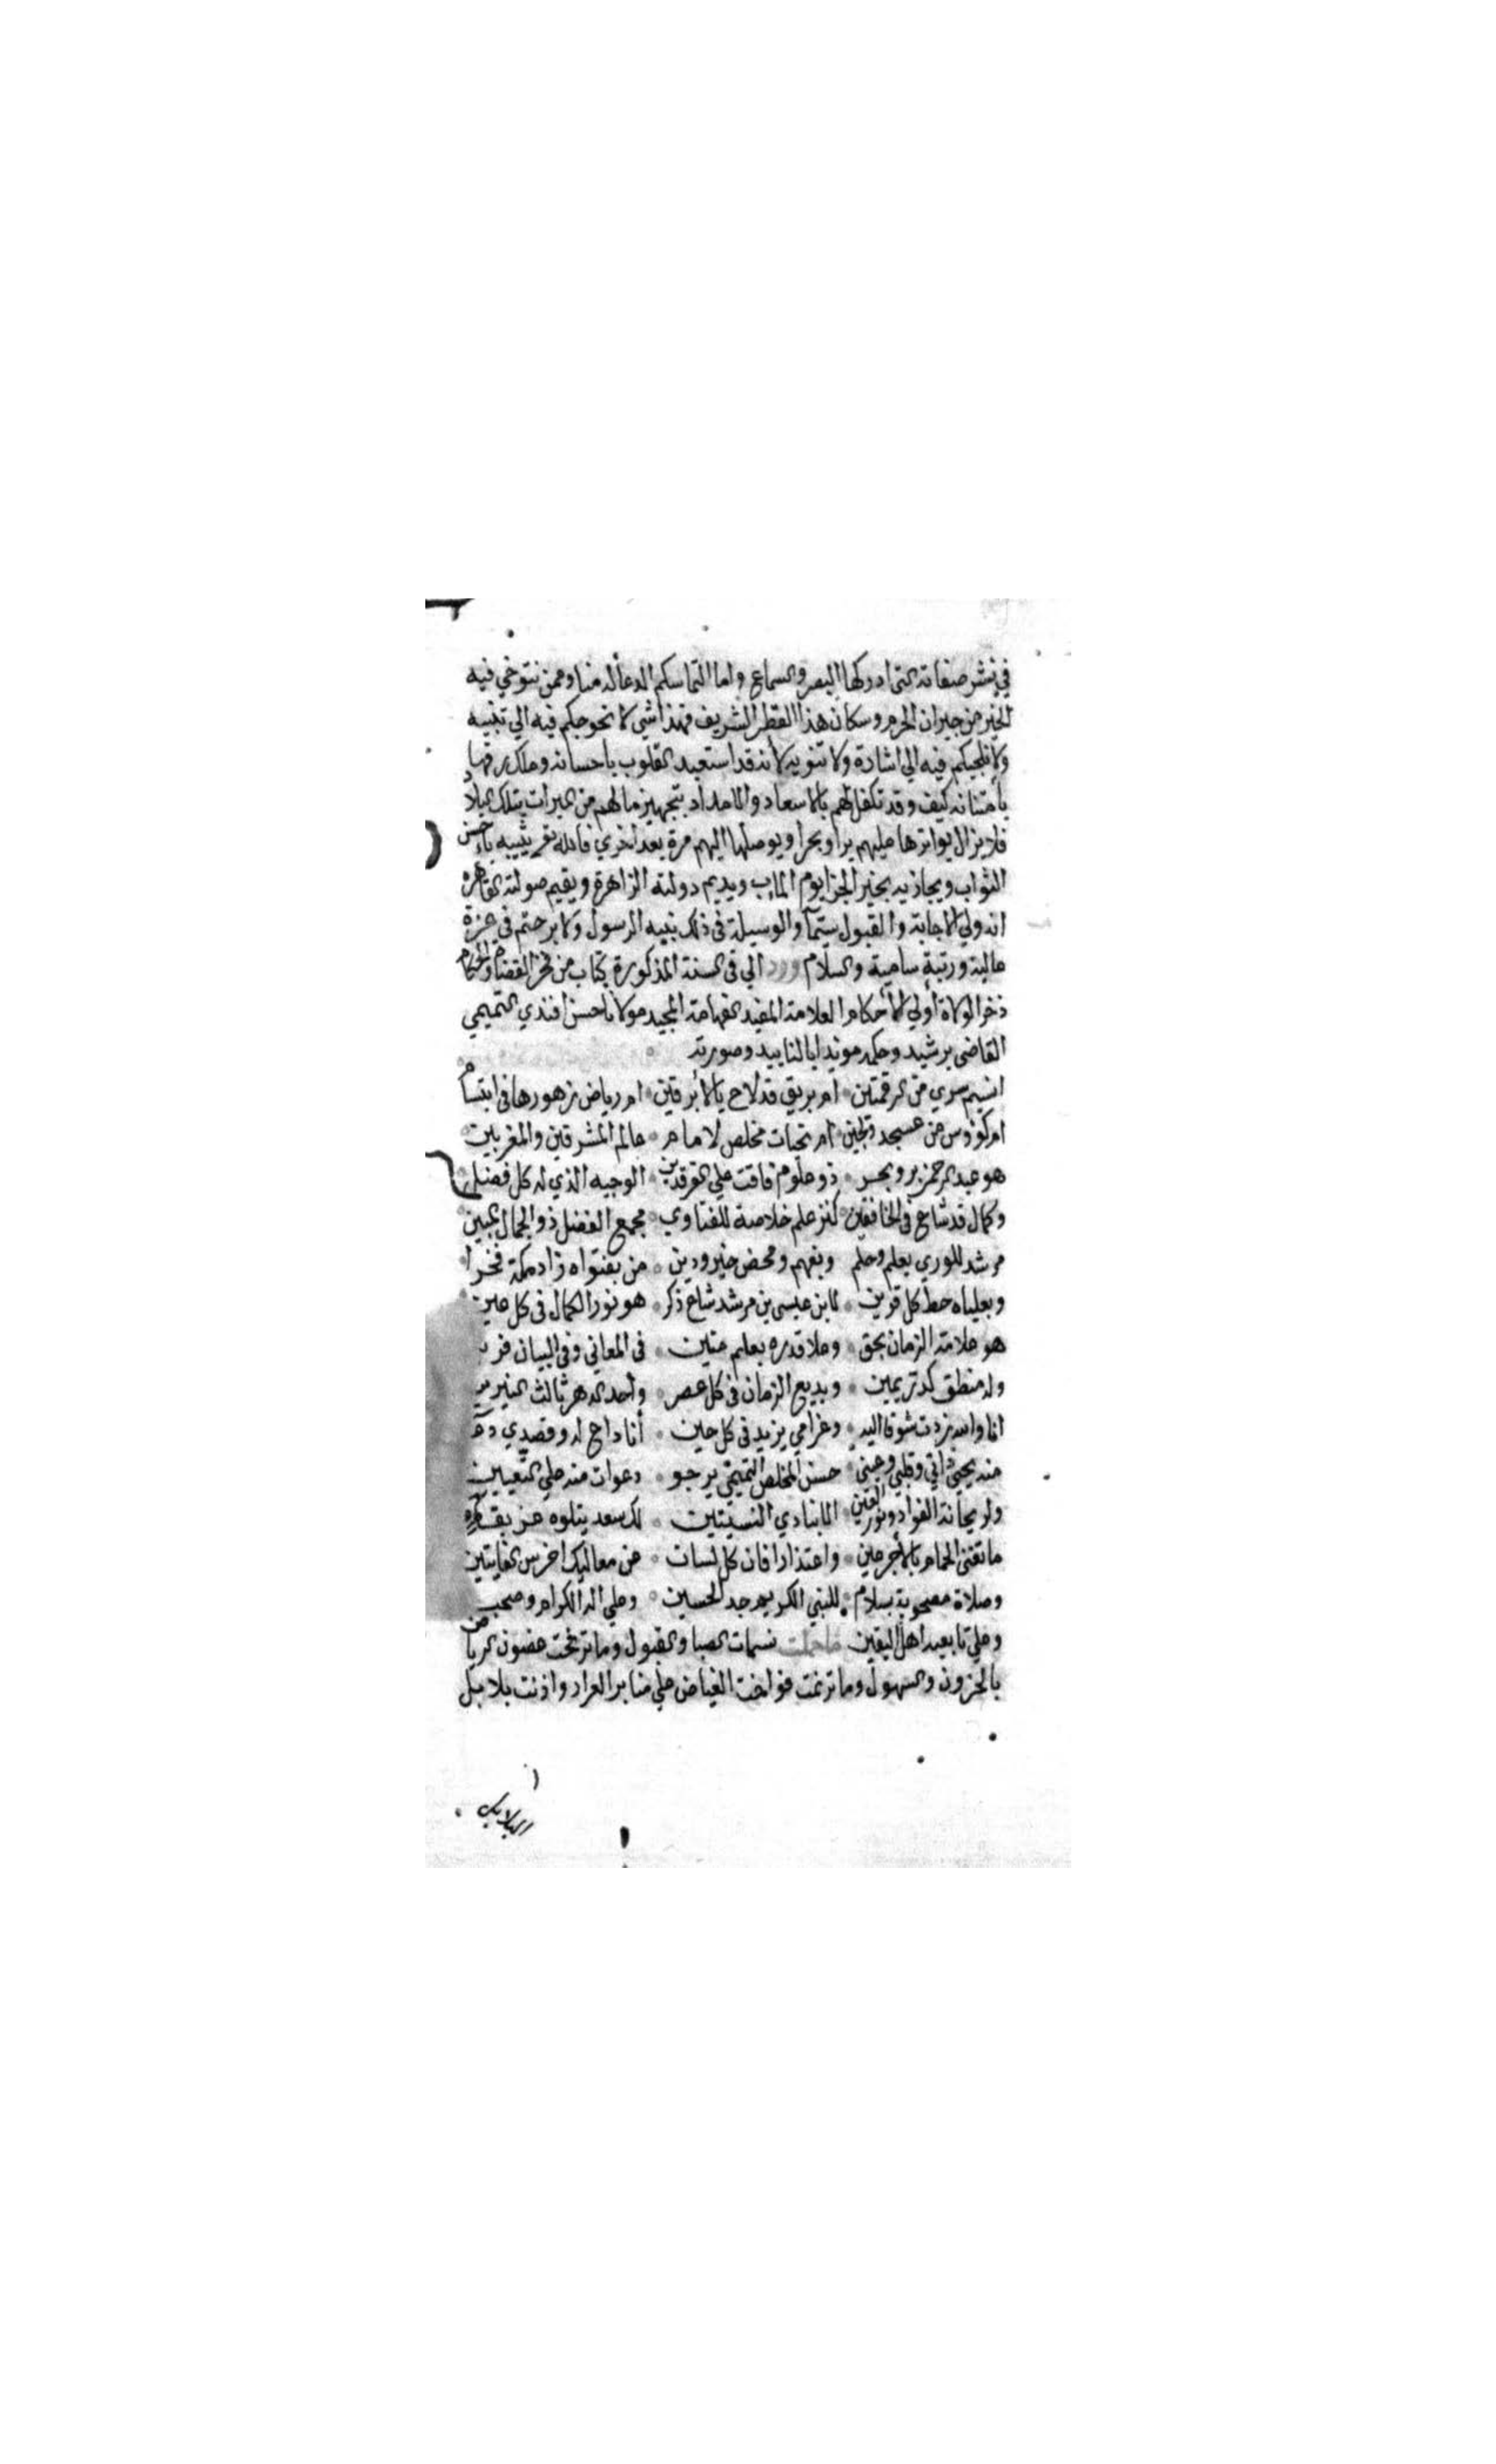 في نشر صفاته التى ادركها البصر والسماع واما التماسكم الدعأله منا وممن نتوخي فيه
الخير من جيران الحرم وسكان هذا القطر الشريف فهذا شي لا نحوجكم فيه الي تنبيه
ولا نلجيكم فيه الي اشادة ولا تنويه لأنه قد استعبد القلوب باحسانه وملك رقها
بأمتنانه كيف وقد تكفل لهم بالاسعاد والامداد بتجهيز مالهم من الميرات بتلك البلاد
فلا يزال يواترها عليهم برا وبحرا ويوصلها اليهم مرة بعد اخري فالله تعـ يثيبه باحسن
الثواب ويجازيه بخير الجزا يوم الماب ويديم دولته الزاهرة ويقيم صولته القاهره
انه ولي الاجابة والقبول سيما والوسيلة فى ذلك نبيه الرسول ولا برحتم فى عزة
عالية ورتبة سامية والسلام ورد الي فى السنة المذكورة كتاب من فخر القضاة والحكام
ذخر الولاة أولي الأحكام العلامة المفيد الفهامة المجيد مولانا حسن افندي التميمي
القاضي برشيد وحكمه مويدا بالتاييد وصورته
انسيم سري من الرقمتين ام بريق قد لاح بالأبرقين ام رياض زهورها فى ابتسام
ام كؤوس من عسجد ولجين ام تحيات مخلص لامام عالم المشرقين والمغربين
هو عبد الرحمن بر وبحر ذو علوم فاقت علي الفرقدين الوجيه الذي له كل فضل
وكمال قد شاع فى الخافقين كنز علم خلاصة للفتاوي مجمع الفضل ذو الجمال المبين
مرشد للوري بعلم وحلم وبفهم ومحض خير ودين من بفتواه زاد مكة فخرا
وبعلياه حط كل قرين لابن عيسى بن مرشد شاع ذكر هو نور الكمال فى كل حين
هو علامة الزمان بحق وعلا قدره بعلم متين فى المعاني وفى البيان
وله منطق كدر ثمين وبديع الزمان فى كل عصر وأحد الدهر ثالث النيرين
انا والله زدت شوقا اليه وغرامي يزيد فى كل حين أنا داع له وقصدي
منه يحيى ذاتي وقلبي وعيني حسن المخلص التميمي يرجو دعوات منه علي
ولريحانة الفواد ونور العين لك سعد يتلوه عز
ما تغنى الحمام بالأجرعين واعتذارا فان كل لسان عن معاليك اخرس
وصلاة مصحوبة بسلام للنبي الكريم جد الحسين وعلي اله الكرام وصحب
وعلي تابعيه اهل اليقين ما حملت نسمات الصبا والقبول وما ترنحت غضون الربا من
بالحزون والسهول وما ترنمت فواخت الغياض علي منابر العرار واذنت بلابل
البلابل